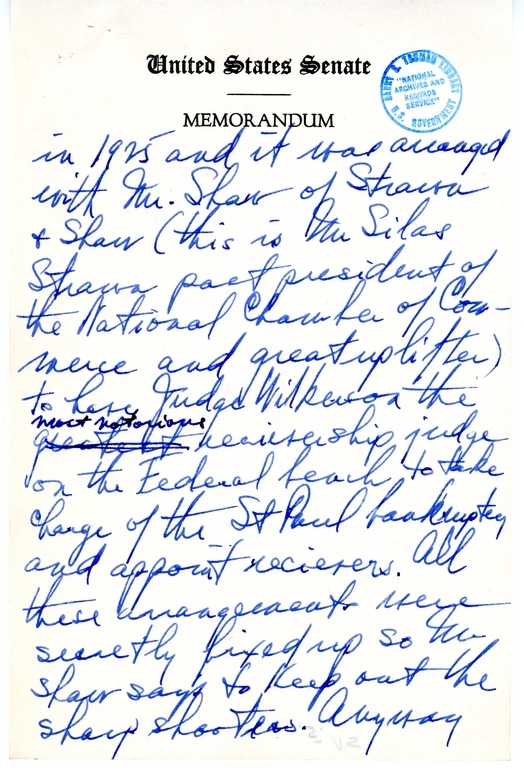 United States Senate
MEMORANDUM
HARRY S. TRUMAN LIBRARY
"NATIONAL
ARCHIVES AND
RECORDS
SERVICE"
U.S. GOVERNMENT
in 1925 and it was arranged
with Mr. Shaw of Strawn
& Shaw (this is Mr Silas
Strawn past president of
the National Chamber of Com-
merce and great uplifter)
to have Judge Wilkerson the
most notorious
greatest recievership judge
on the Federal bench to take
charge of the St Paul bankruptcy
and appoint recievers. All
these arrangements were
secretly fixed up so Mr
Shaw says to keep out the
sharp shooters. Anyway